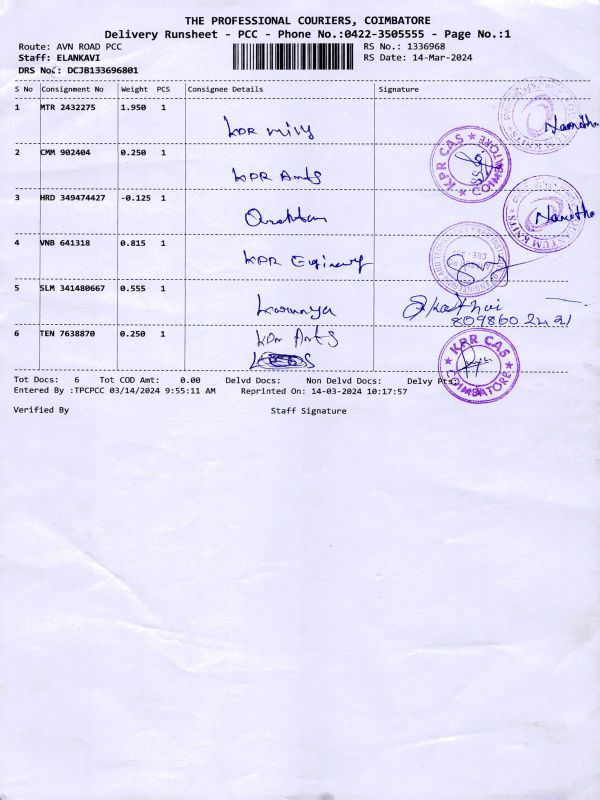 THE PROFESSIONAL COURIERS, COIMBATORE
Delivery Runsheet - PCC - Phone No.:0422-3505555 - Page No.:1
Route: AVN ROAD PCC RS No.: 1336968
Staff: ELANKAVI RS Date: 14-Mar-2024
DRS No.: DCJB133696801
S No Consignment No Weight PCS Consignee Details Signature
1 MTR 2432275 1.950 1
KPR Mills Namitha
2 CMM 902404 0.250 1
KPR Arts KPR CAS COIMBATORE
3 HRD 349474427 -0.125 1
Namitha
4 VNB 641318 0.815 1
KPR
5 SLM 341480667 0.555 1
Karunya
8098602421
6 TEN 7638870 0.250 1
KPR Arts KPR CAS COIMBATORE
Tot Docs: 6 Tot COD Amt: 0.00 Delvd Docs: Non Delvd Docs: Delvy Pts:
Entered By :TPCPCC 03/14/2024 9:55:11 AM Reprinted On: 14-03-2024 10:17:57
Verified By Staff Signature